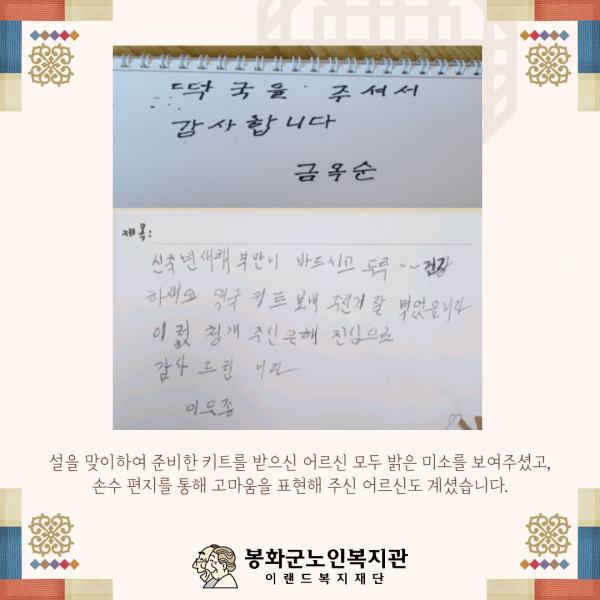 떡국을 주셔서
감사합니다
금옥순
제목:
신축년새해 복만이 바드시고 두루 ·· 건강
하세요 떡국 키트 보내 주신거 잘 먹었읍니다
이렇 챙개 주신 은해 진심으로
감사 드린 니다
이웃종
설을 맞이하여 준비한 키트를 받으신 어르신 모두 밝은 미소를 보여주셨고,
손수 편지를 통해 고마움을 표현해 주신 어르신도 계셨습니다.
봉화군노인복지관
이랜드복지재단